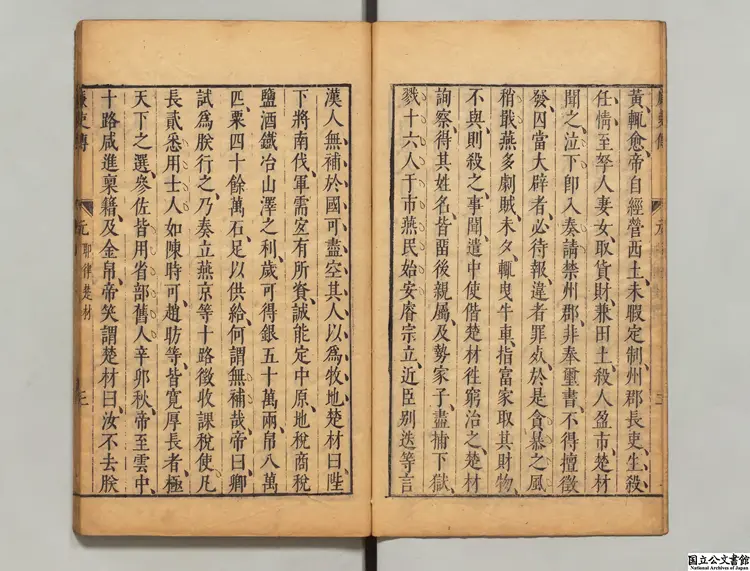 黃、輒愈、帝自經營西土、未暇定制、州郡長吏、生殺
任情、至孥人妻女、取貨財、兼田土、殺人盈市、楚材
聞之、泣下、即入奏、請禁州郡、非奉璽書、不得擅徵
發、囚當大辟者、必待報、違者罪死、於是貪暴之風
稍戢、燕多劇賊、未夕、輒曳牛車、指富家取其財物、
不與、則殺之、事聞、遣中使偕楚材往窮治之、楚材
詢察得其姓名、皆畱後親屬、及勢家子、盡捕下獄、
戮十六人于市、燕民始安、睿宗立、近臣別迭等言
漢人無補於國、可盡空其人以爲牧地、楚材曰、陛
下將南伐、軍需宜有所資、誠能定中原、地稅、商稅
鹽酒鐵冶山澤之利、歲可得銀五十萬兩、帛八萬
匹、粟四十餘萬石、足以供給、何謂無補哉、帝曰、卿
試爲朕行之、乃奏立燕京等十路徵收課稅使、凡
長貳悉用士人、如陳時可、趙昉等、皆寬厚長者、極
天下之選、參佐皆用省部舊人、辛卯秋、帝至雲中、
十路咸進稟籍、及金帛、帝笑謂楚材曰、汝不去朕
傳
元
耶律楚材
三
National Archives of Japan
国立公文書館